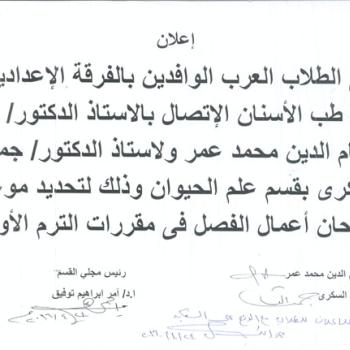 إعلان
الطلاب العرب الوافدين بالفرقة الإعدادي
طب الأسنان الإتصال بالاستاذ الدكتور/
ام الدين محمد عمر ولاستاذ الدكتور/ جم
كرى بقسم علم الحيوان وذلك لتحديد مو
حان أعمال الفصل فى مقررات الترم الأو
م الدين محمد عمر
رئيس مجلي القسم
السكرى
ا.د/ أمير ابراهيم توفيق